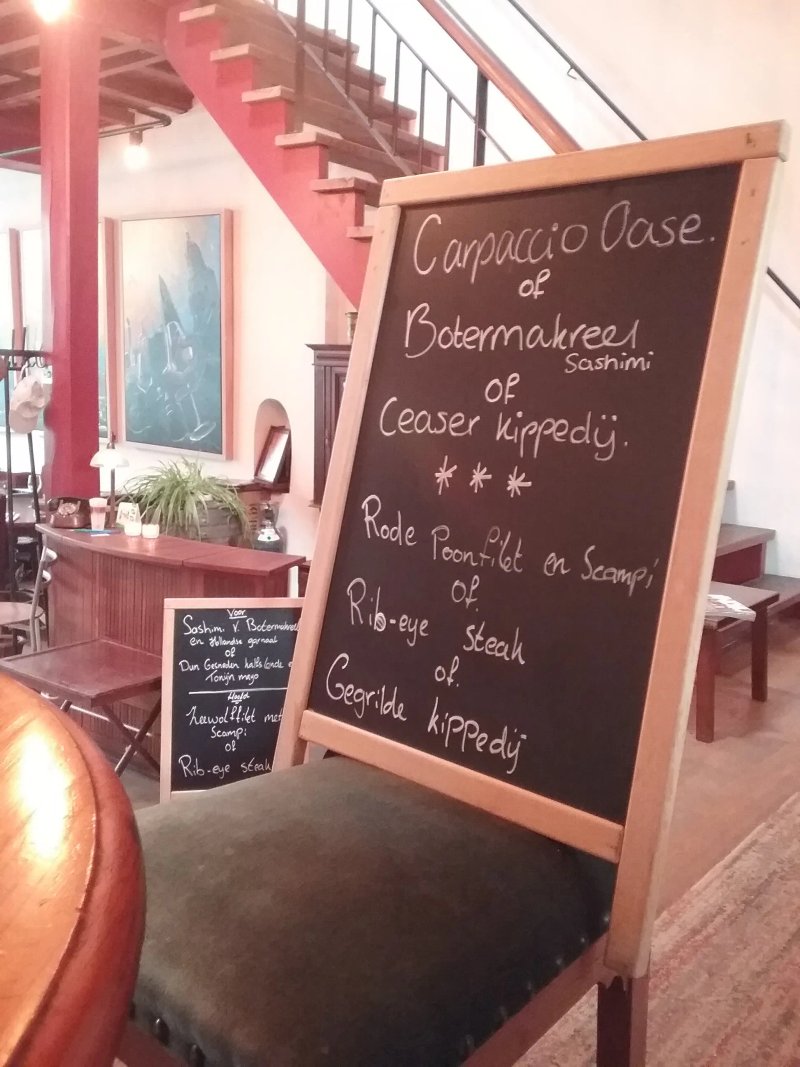 Carpaccio Oase.
of
Botermakreel
Sashimi
of
Ceaser kippedij.
***
Rode Poonfilet en Scampi
of.
Rib-eye steak
of.
Gegrilde kippedij
Voor
Sashimi v. Botermakreel
en Hollandse garnaal
of
Dun Gesneden kalfs lende
Tonijn mayo
Hoofd
Zeewolffilet met
Scampi
of
Rib-eye steak